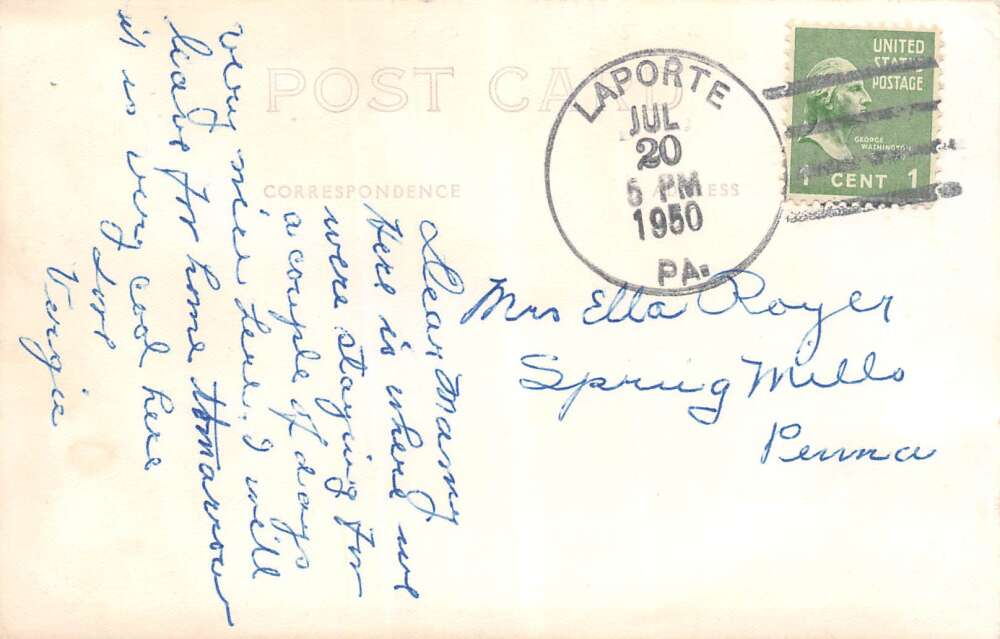 POST CARD
CORRESPONDENCE
ADDRESS
LAPORTE
JUL
20
5 PM
1950
PA.
UNITED
STATES
POSTAGE
GEORGE
WASHINGTON
1 CENT 1
Mrs Ella Royer
Spring Mills
Penna
Dear Mamy
Here is where we
were staying for
a couple of days
very nice here. I will
leave for home tomarrow
it is very cool here
Love
Vergie